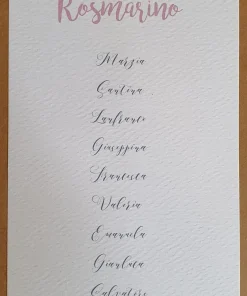 Rosmarino
Marzia
Santina
Lanfranco
Giuseppina
Francesca
Valeria
Emanuela
Gianluca
Salvatore